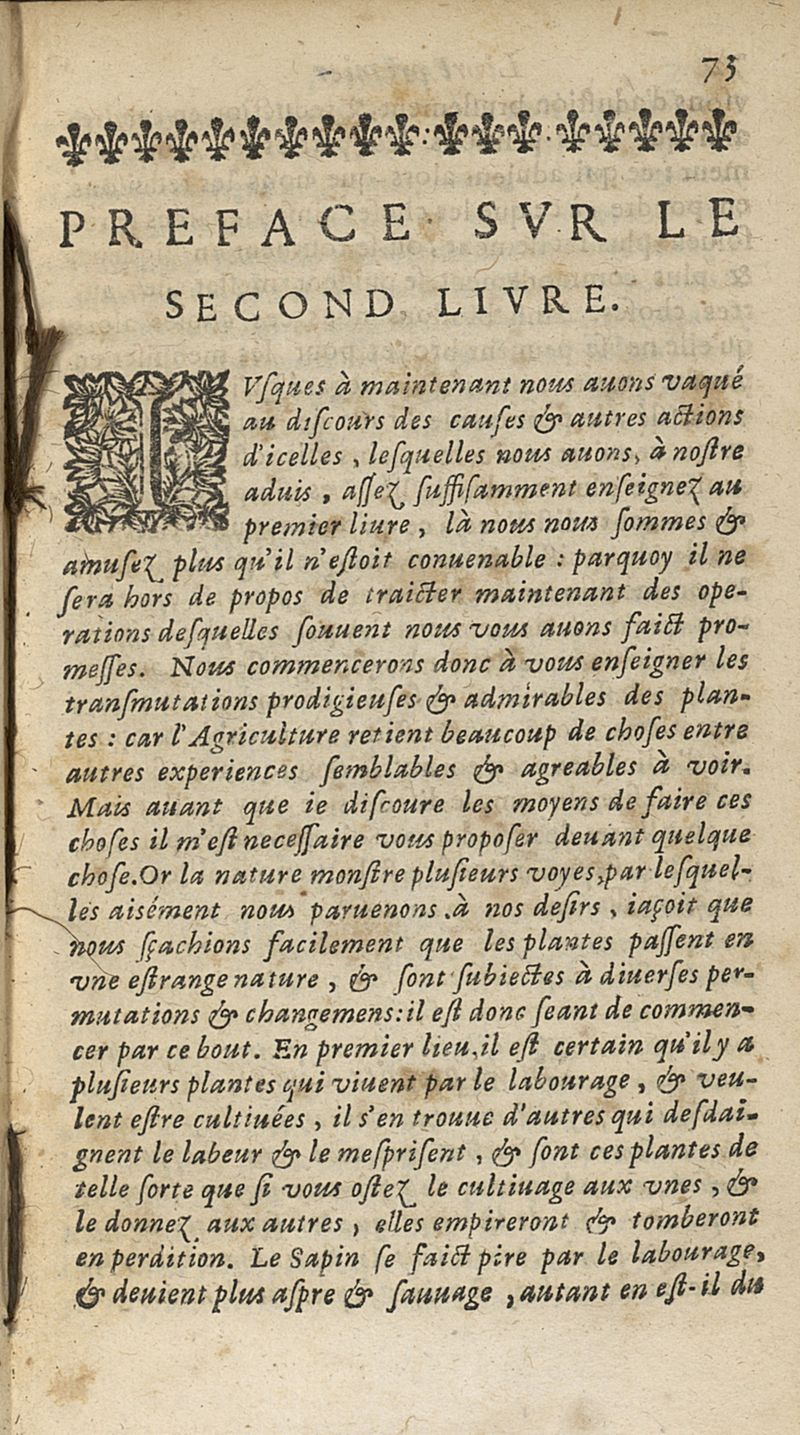 73
PREFACE SVR LE
SECOND LIVRE.
IVſques à maintenant nous auons vaqué
au diſcours des cauſes & autres actions
d'icelles, leſquelles nous auons, à noſtre
aduis, aſſez ſuffiſamment enſeignez au
premier liure, là nous nous ſommes &
amuſez plus qu'il n'eſtoit conuenable : parquoy il ne
ſera hors de propos de traicter maintenant des ope-
rations deſquelles ſouuent nous vous auons faict pro-
meſſes. Nous commencerons donc à vous enſeigner les
tranſmutations prodigieuſes & admirables des plan-
tes : car l'Agriculture retient beaucoup de choſes entre
autres experiences ſemblables & agreables à voir.
Mais auant que ie diſcoure les moyens de faire ces
choſes il m'eſt neceſſaire vous propoſer deuant quelque
choſe. Or la nature monſtre pluſieurs voyes, par leſquel-
les aisément nous paruenons à nos deſirs, iaçoit que
nous ſçachions facilement que les plantes paſſent en
vne eſtrange nature, & ſont ſubiectes à diuerſes per-
mutations & changemens: il eſt donc ſeant de commen-
cer par ce bout. En premier lieu, il eſt certain qu'il y a
pluſieurs plantes qui viuent par le labourage, & veu-
lent eſtre cultiuées, il s'en trouue d'autres qui deſdai-
gnent le labeur & le meſpriſent, & ſont ces plantes de
telle ſorte que ſi vous oſtez le cultiuage aux vnes, &
le donnez aux autres, elles empireront & tomberont
en perdition. Le Sapin ſe faict pire par le labourage,
& deuient plus aſpre & ſauuage, autant en eſt-il du